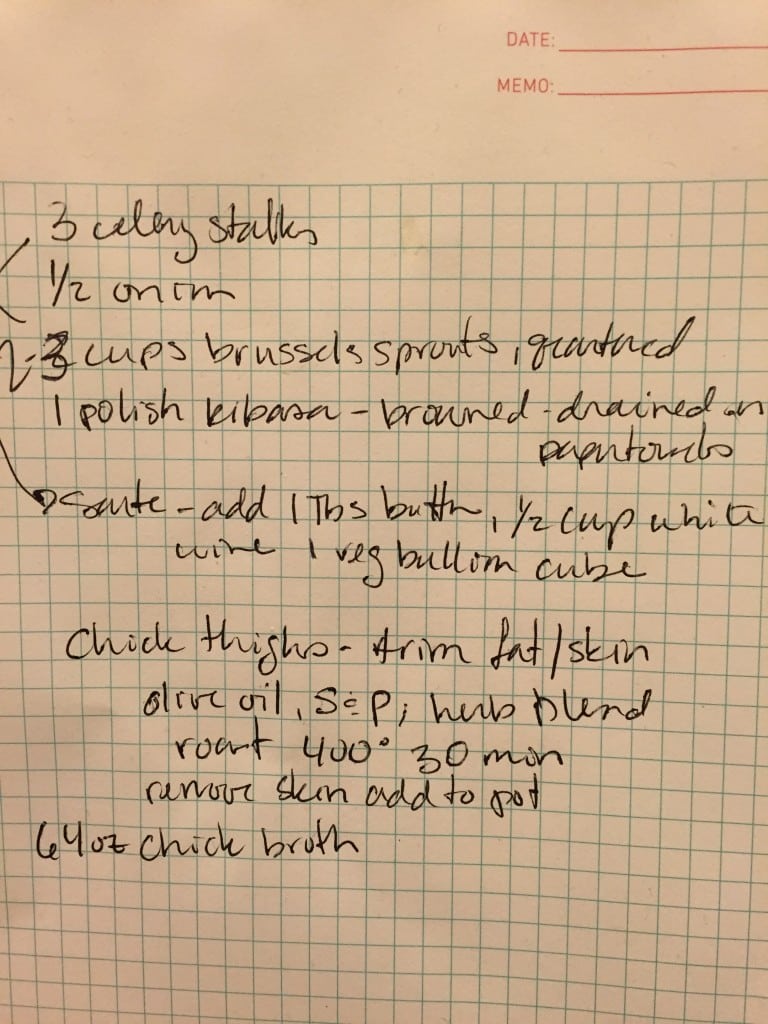 DATE:
MEMO:
3 celery stalks
1/2 onion
2-3 cups brussels sprouts, quartered
1 polish kibasa - browned - drained on
paper towels
Saute - add 1 Tbs butter, 1/2 cup white
wine 1 veg bullion cube
Chick thighs - trim fat/skin
olive oil, S&P, herb blend
roast 400° 30 min
remove skin add to pot
64 oz chick broth